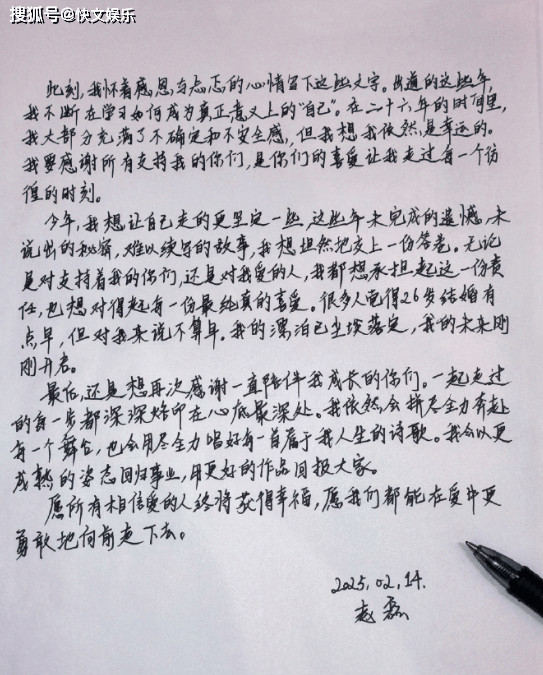 搜狐号@快文娱乐
此刻,我怀着感恩与忐忑的心情留下这些文字。出道的这些年,
我不断在学习如何成为真正意义上的“自己”。在二十六年的时间里,
我大部分充满了不确定和不安全感,但我想我依然是幸运的。
我要感谢所有支持我的你们,是你们的喜爱让我走过每一个彷
徨的时刻。
今年,我想让自己走的更坚定一些,这些年未完成的遗憾,未
说出的秘密,难以续写的故事,我想坦然地交上一份答卷。无论
是对支持着我的你们,还是对我爱的人,我都想承担起这一份责
任,也想对得起每一份最纯真的喜爱。很多人觉得26岁结婚有
点早,但对我来说不算早。我的漂泊已尘埃落定,我的未来刚
刚开启。
最后,还是想再次感谢一直陪伴我成长的你们。一起走过
的每一步都深深烙印在心底最深处。我依然会拼尽全力奔赴
每一个舞台,也会用尽全力唱好每一首属于我人生的诗歌。我会以更
成熟的姿态回归事业,用更好的作品回报大家。
愿所有相信爱的人终将获得幸福,愿我们都能在爱中更
勇敢地向前走下去。
2025.02.14.
赵磊